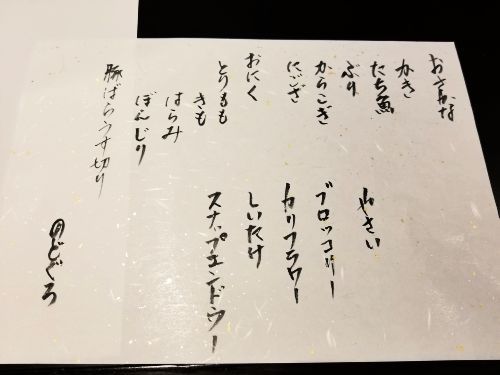 おさかな
かき
たち魚
ぶり
からこぎ
にござ
おにく
とりもも
きも
はらみ
ぼんじり
豚ばらうす切り
やさい
ブロッコリー
カリフラワー
しいたけ
スナップエンドウー
のどぐろ